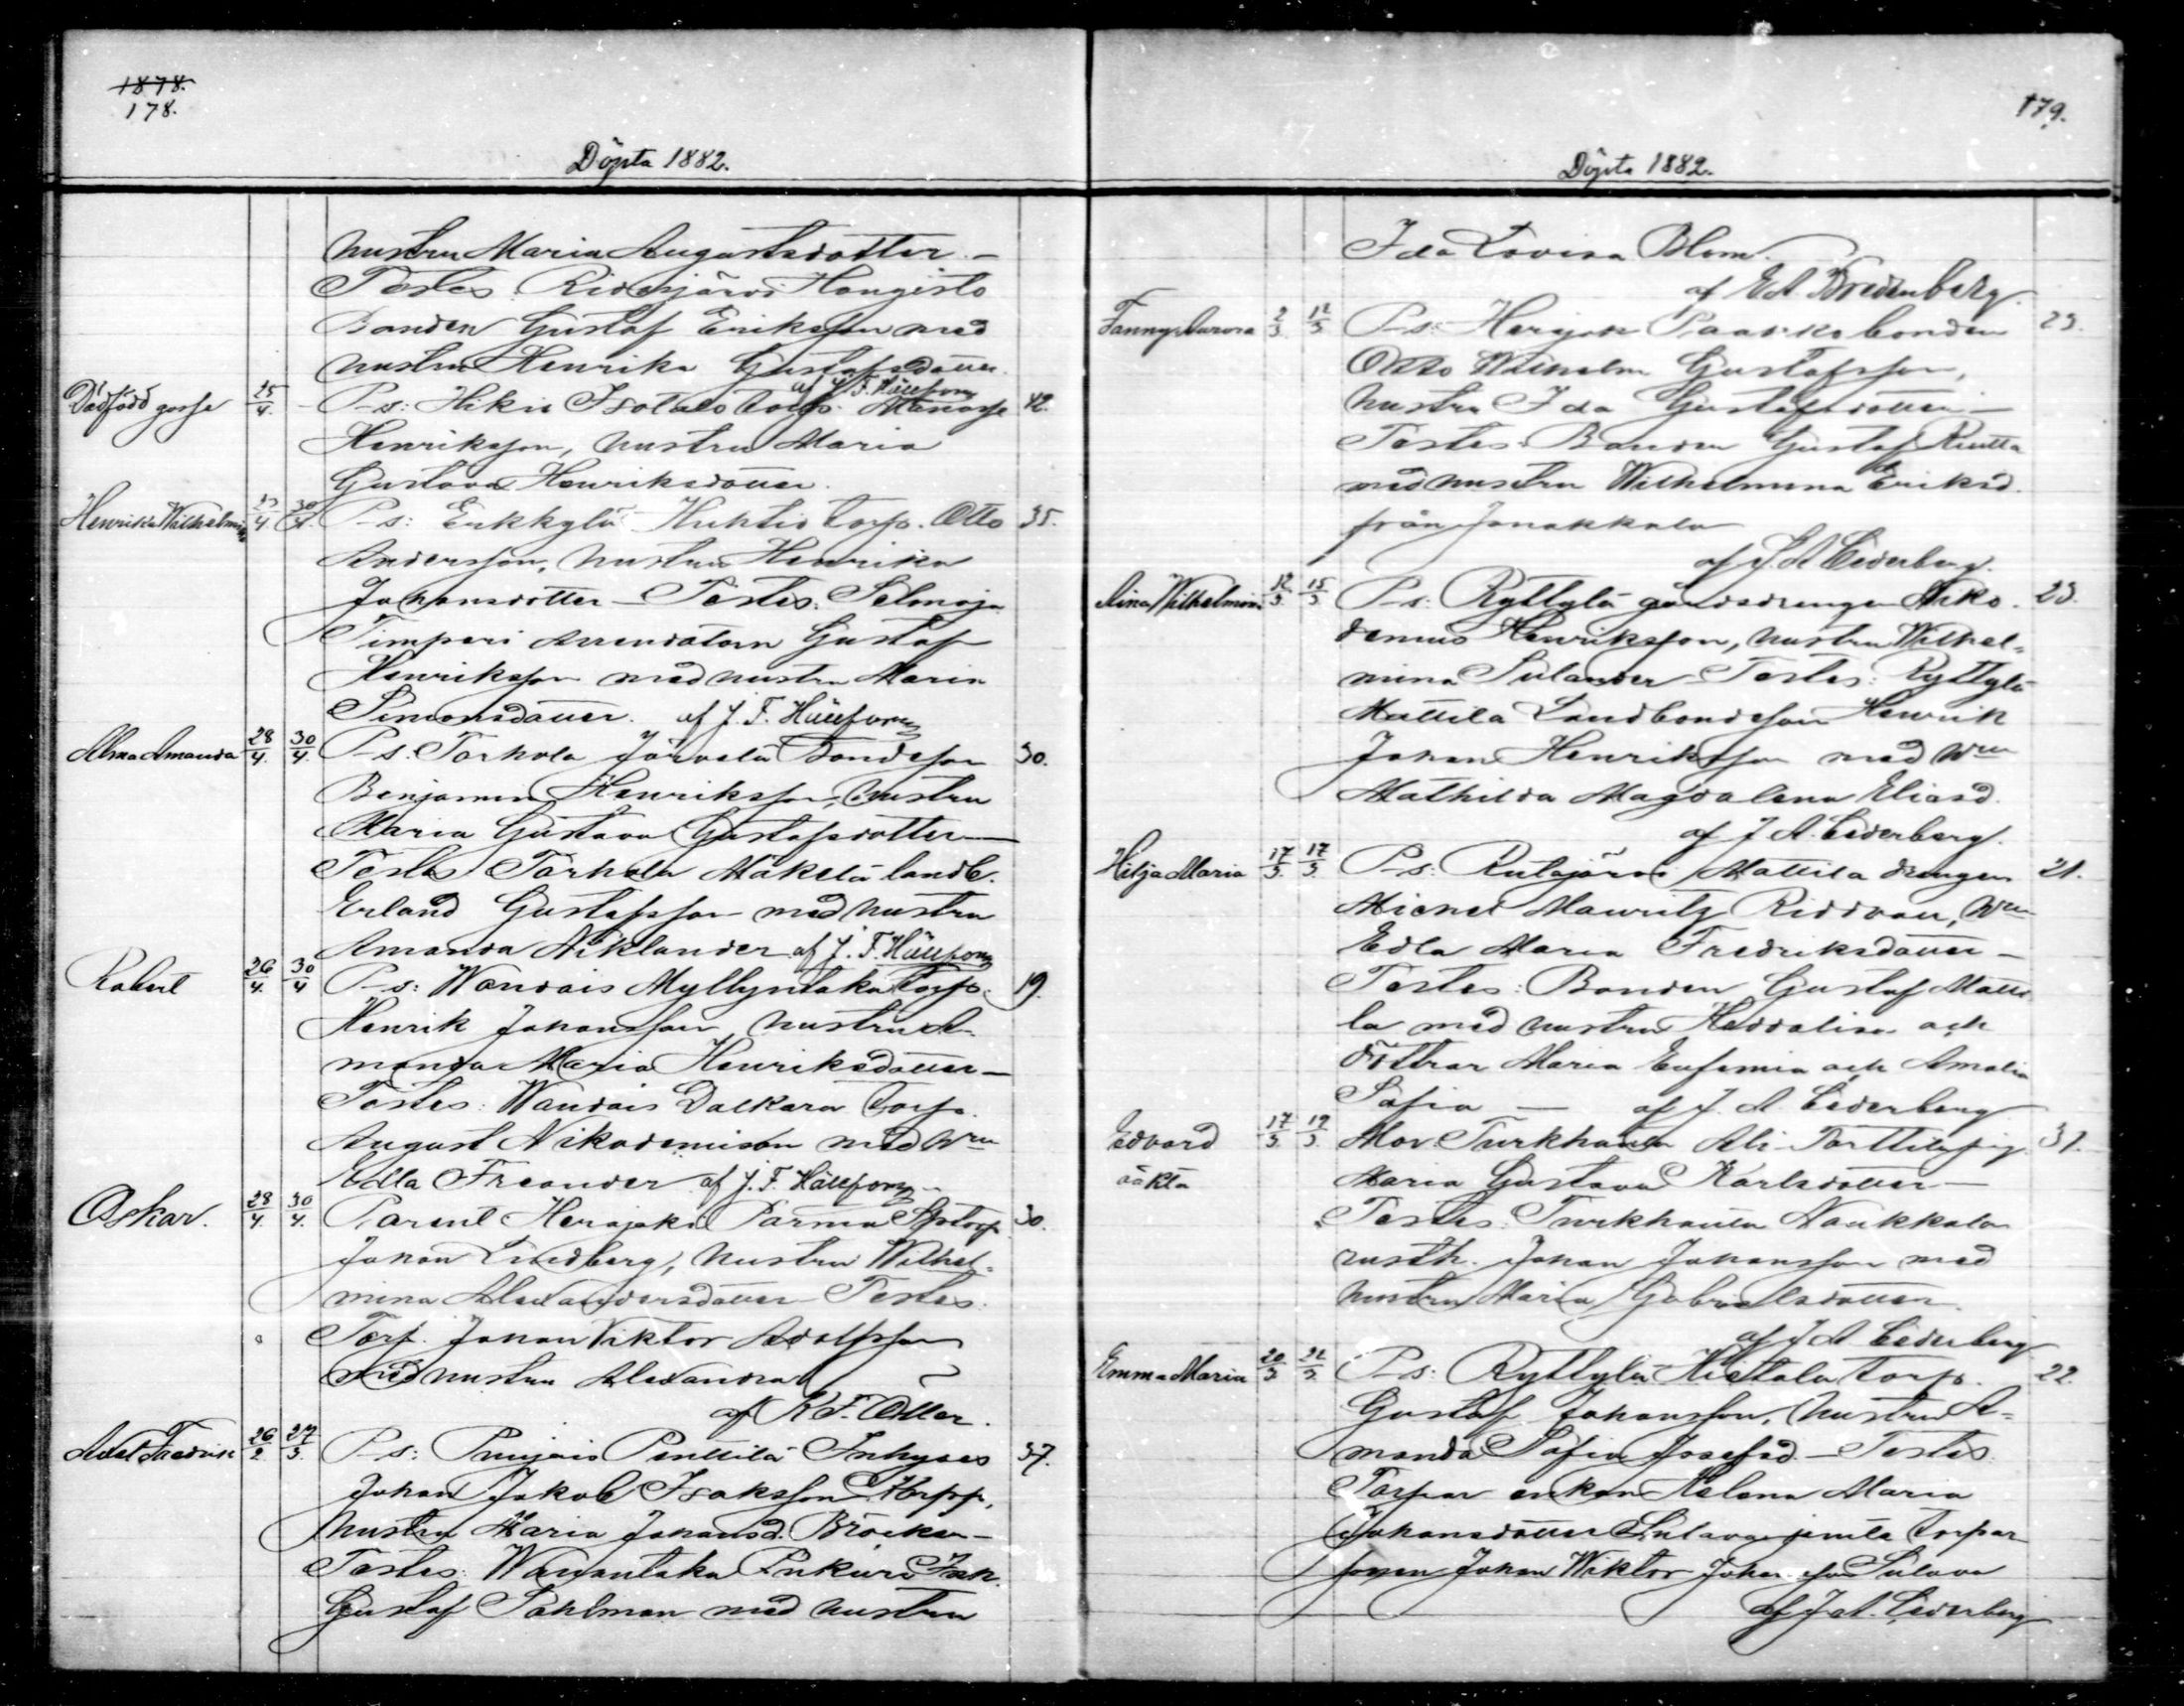 1878.
178.
Döpta 1882.
hustru Maria Augustsdotter. –
Testes Ridasjärvi Hongisto
Bonden Gustaf Eriksson med
hustru Henrika Gustafsdotter.
af J. F. Hällfors
Dödfödd gosse 25/4. – P-s: Hikiä Isotalo torp. Manasse 42.
Henriksson, hustru Maria
Gustava Henriksdotter.
Henrika Wilhelmina 27/4 30/4. P-s: Erkkylä Huhtio torp. Otto 35.
Andersson, hustru Henrika
Johansdotter – Testes: Selinoja
Timpari Arrendatorn Gustaf
Henriksson med hustru Maria
Simonsdotter. af J. F. Hällfors
Alma Amanda 28/4. 30/4. P-s. Torhola Järvelä Bondeson 30.
Benjamin Henriksson, hustru
Maria Gustava Gustafsdotter –
Testes Torhola Mäkelä landb.
Erland Gustafsson med hustru
Amanda Niklander af J. F. Hällfors
Robert 26/4. 30/4 P-s: Wandais Myllyntaka torp. 19.
Henrik Johansson, hustru A-
manda Maria Henriksdotter –
Testes: Wandais Dalkara torp.
August Nikodemison med h:n
Edla Freander af J. F. Hällfors
Oskar. 28/4. 30/4. Parent Herajoki Parma torp 30.
Johan Lindberg, hustru Wilhel-
mina Alexandersdotter – Testes.
Torp. Johan Viktor Adolfsson
med hustru Alexandra
af K F. Öller.
Axel Fredrik 26/2. 27/3. P-s: Penttilä Inhyses 37.
Johan Jakob Isaksson
hustru Maria Johansd.
Testes: Wanantaka
Gustaf Sahlman med hustru
179.
Döpta 1882.
Ida Lovisa Blom.
af E. A. Bredenberg.
Fanny Aurora 2/3. 12/3 P-s: Herajoki Paavko bonden 23.
Otto Wilhelm Gustafsson,
hustru Ida Gustafsdotter –
Testes: Bonden Gustaf
med hustru Wilhelmina Eriksd.
från Janakkala
af J. A. Cederberg.
Aina Wilhelmina 12/3. 15/3 P-s: Ryttylä gårdsdrengen Niko- 23.
demus Henriksson, hustru Wilhel-
mina Sulander – Testes: Ryttylä
Mattila Landbondeson Henrik
Johan Henriksson med h:n
Mathilda Magdalena Eliasd.
af J. A. Cederberg.
Hilja Maria 17/3. 17/3. P-s: Mattila drengen 21.
Michel Mauritz Riddvan, h:n
Edla Maria Fredriksdotter –
Testes: Bonden Gustaf Matti-
la med hustru Heddalisa och
döttrar Maria Eufemia och Amalia
Sofia – af J. A. Cederberg
Edvard 17/3. 19/3. Mor. Turkhauta Ali-Torttila pig. 31.
oäkta Maria Gustava Karlsdotter –
Testes. Turkhauta Naukkala
rusth. Johan Johansson med
hustru Maria Gabrielsdotter.
af J. A. Cederberg
Emma Maria 20/3. 22/3. P-s: Ryttylä Hietala torp. 22.
Gustaf Johansson, hustru A-
manda Sofia Josefsd. – Testes.
Torpar enkan Helena Maria
Johansdotter Sulava jemte torpar
sonen Johan Wiktor Johansson Sulava
af J. A. Cederberg